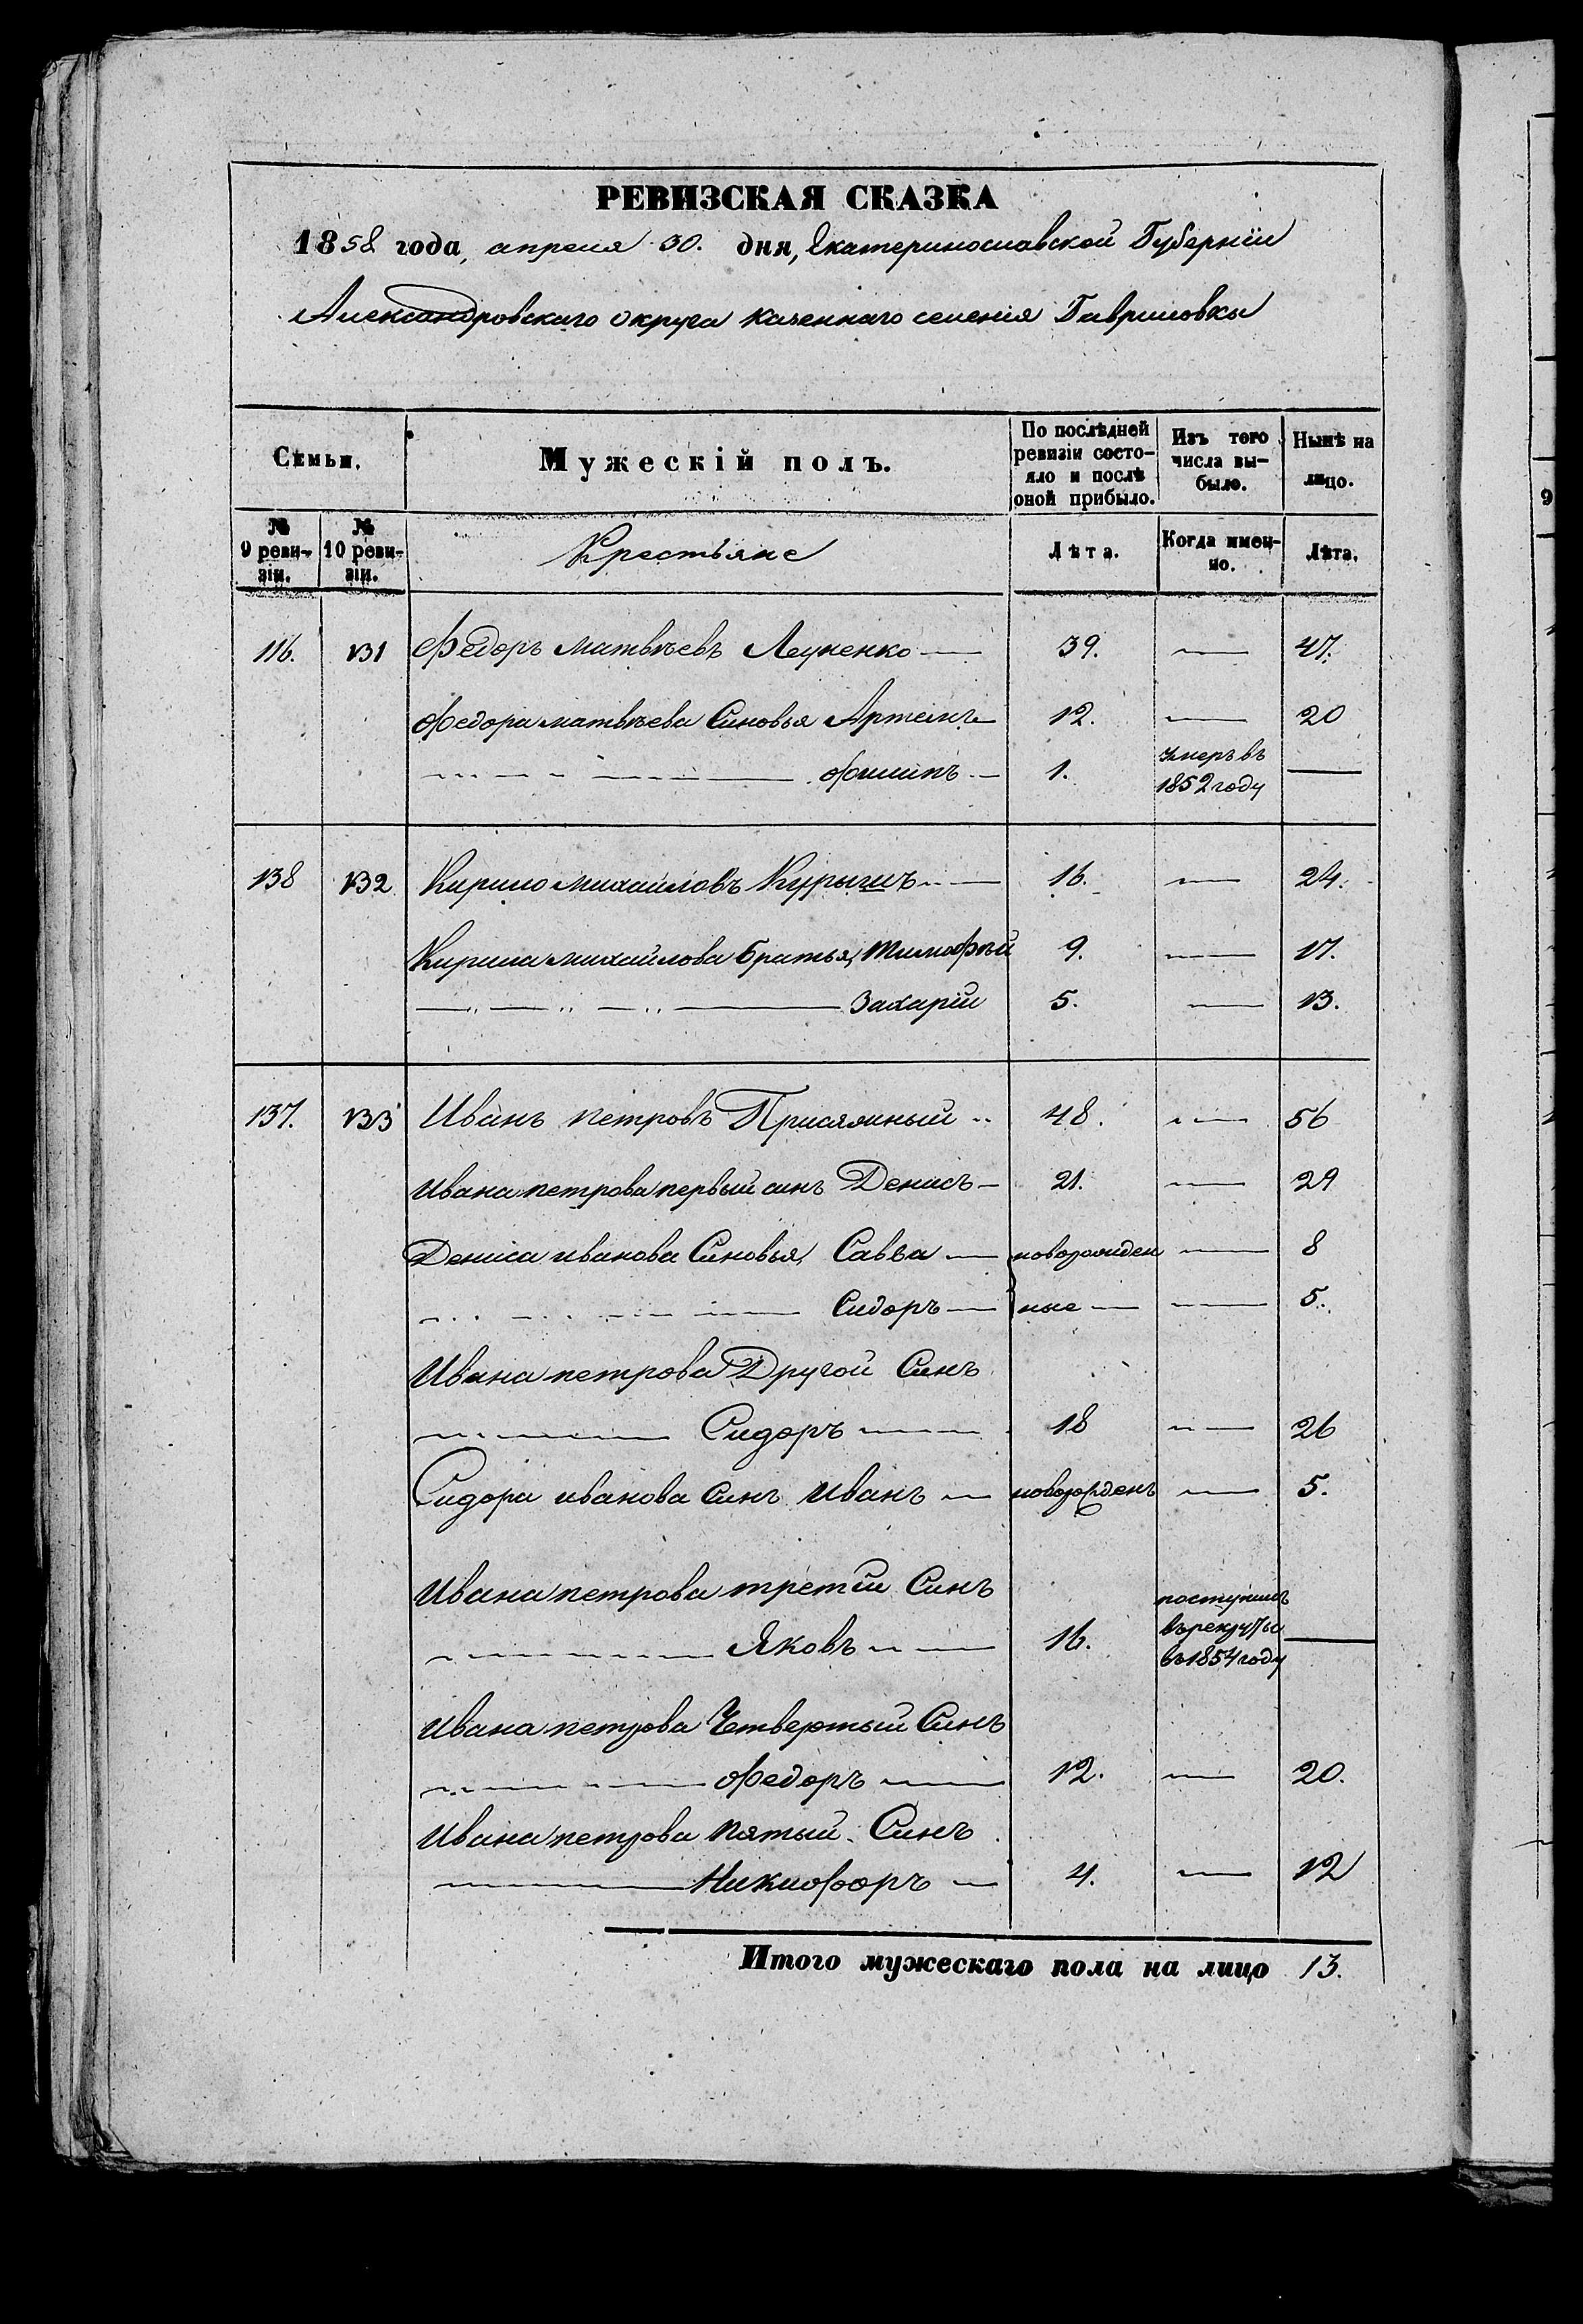 РЕВИЗСКАЯ СКАЗКА
1858 года, апреля 30. дня, Екатеринославской Губернiи
Александровскаго округа казеннаго селенiя Гавриловки
Семьи.
Мужескiй полъ.
По послѣдней ревизiи состояло и послѣ оной прибыло.
Изъ того числа выбыло.
Нынѣ на лицо.
№ 9 ревизiи.
№ 10 ревизiи.
Крестьяне
Лѣта.
Когда именно.
Лѣта.
116. 131 Федоръ Матвѣевъ 39. — 47.
Федора Матвѣева Синовья Артемъ — 12. — 20
Филипъ — 1. умеръ въ 1852 году —
138 132 Кирило Михайловъ — 16. — 24.
Кирила Михайлова братья, Тимофѣй 9. — 17.
Захарiй 5. — 13.
137. 133 Иванъ Петровъ Присяжный 48. — 56
Ивана Петрова первый синъ Денисъ — 21. — 29
Дениса Иванова Синовья, Савва — новорожден — 8
Сидоръ — ные — — 5.
Ивана Петрова Другой Синъ
Сидоръ — 18 — 26
Сидора Иванова Синъ Иванъ — новорожденъ — 5.
Ивана Петрова третiй Синъ
Яковъ — 16. поступилъ въ рекруты въ 1854 году —
Ивана Петрова Четвертый Синъ
Федоръ — 12. — 20.
Ивана Петрова Пятый Синъ
Никифоръ — 4. — 12
Итого мужескаго пола на лицо 13.
9